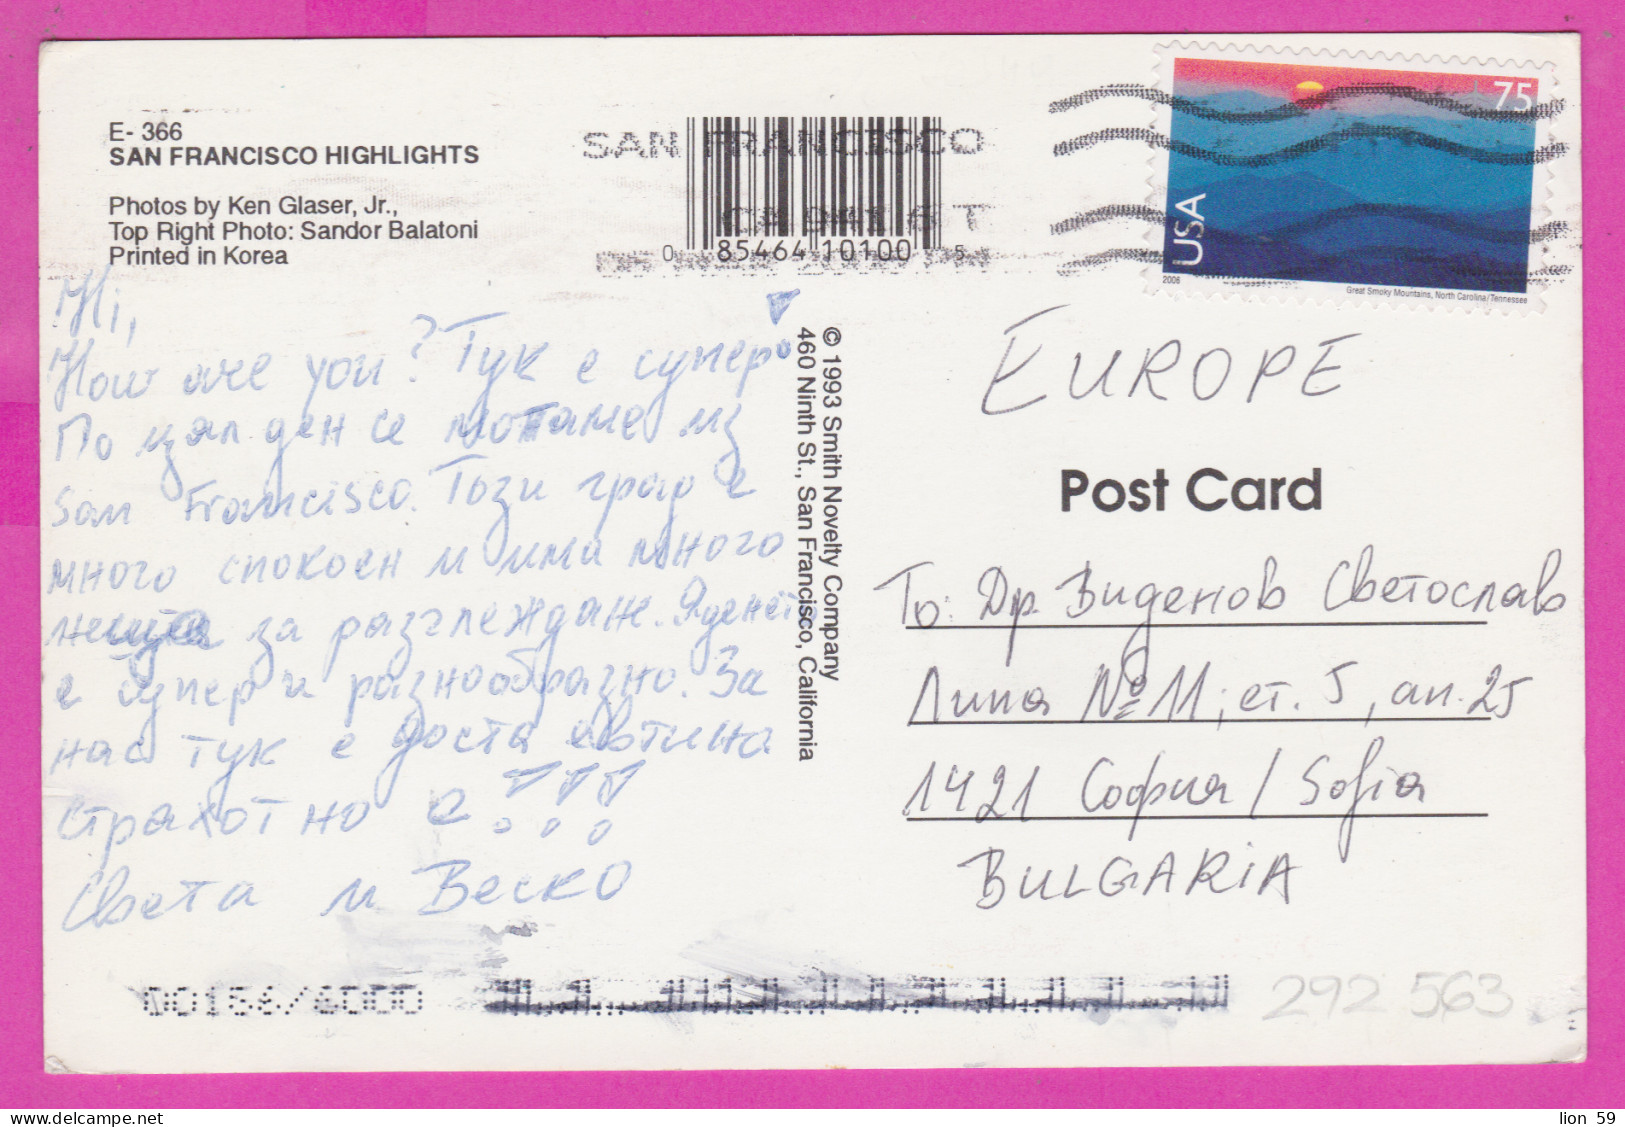 E- 366
SAN FRANCISCO HIGHLIGHTS
Photos by Ken Glaser, Jr.,
Top Right Photo: Sandor Balatoni
Printed in Korea
SAN FRANCISCO
0 85464 10100 5
75
USA
2006
Great Smoky Mountains, North Carolina/Tennessee
Hi,
How are you? Тук е супер!
По цял ден се мотаме из
San Francisco. Този град е
много спокоен и има много
неща за разглеждане. Яденето
е супер и разнообразно. За
нас тук е доста евтино
Страхотно е!!!
Света и Веско
© 1993 Smith Novelty Company
460 Ninth St., San Francisco, California
EUROPE
Post Card
To: Др. Виденов Светослав
Липа № 11, ет. 5, ап. 25
1421 София / Sofia
BULGARIA
292 563
lion 59
www.delcampe.net